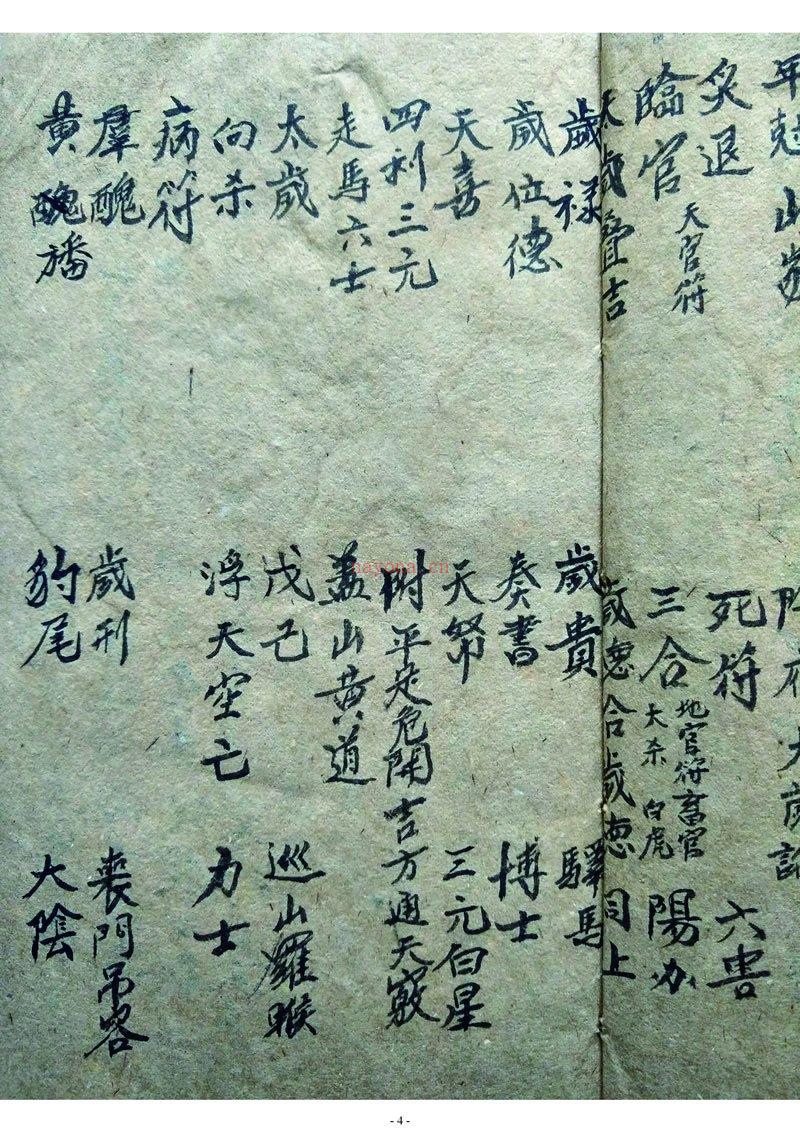 年尅山家
陰府太歲
炙退
死符
六害
臨官 天官符
三合 地官符畜官
大杀 白虎
陽
太歲疊吉
歲德合歲德 同上
歲禄
歲貴
驛馬
歲位德
奏書
博士
天喜
天帑
三元白星
四利三元
附平定危開吉方通天竅
走馬六壬
蓋山黄道
太歲
戊己
巡山羅睺
向杀
浮天空亡
力士
病符
羣醜
歲刑
喪門吊客
黄旛
豹尾
大陰
nayona.cn
- 4 -